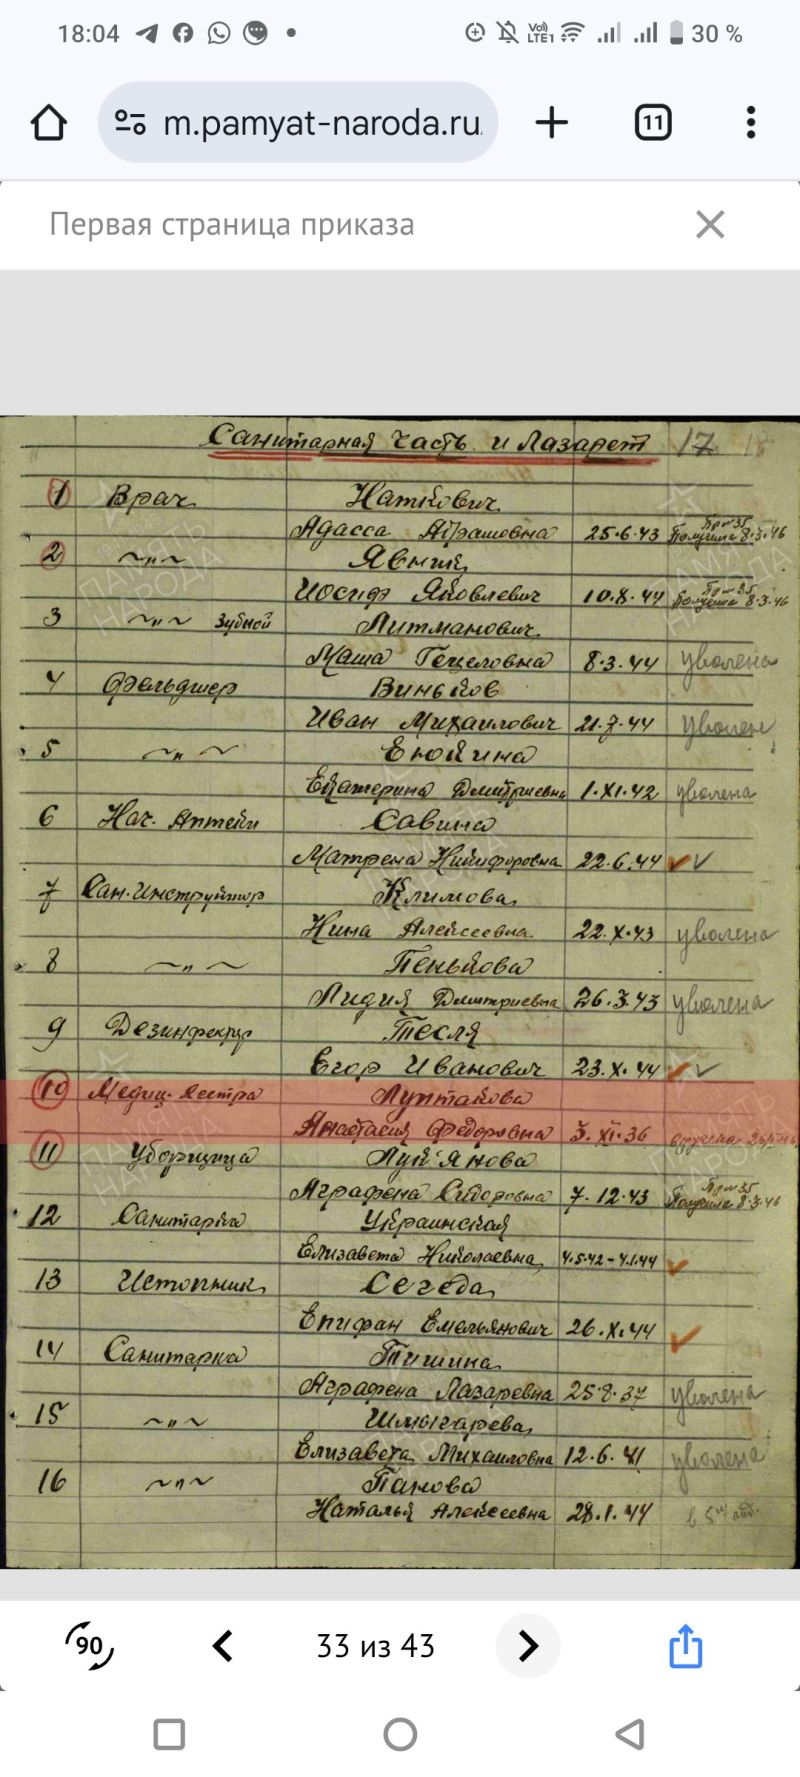 18:04
Vo)) LTE1 30 %
m.pamyat-naroda.ru
11
Первая страница приказа
Санитарная часть и Лазарет 17 18
1 Врач Наткович
Адасса Абрамовна 25.6.43 Пр № 35 Получила 8.3.46
2 ~"~ Явный
Иосиф Яковлевич 10.8.44 Пр № 35 8.3.46
3 ~"~ Зубной Литманович
Маша Гецеловна 8.3.44 уволена
4 Фельдшер Виньков
Иван Михаилович 21.7.44 уволен
5 ~"~ Енокина
Екатерина Дмитриевна 1.XI.42 уволена
6 Нач. Аптеки Савина
Матрена Никифоровна 22.6.44
7 Сан. Инструктор Климова
Нина Алексеевна 22.X.43 уволена
8 ~"~ Пенькова
Лидия Дмитриевна 26.3.43 уволена
9 Дезинфектор Тесля
Егор Иванович 23.X.44
10 Медиц. Сестра Луптакова
Анастасия Федоровна 3.XI.36
11 Уборщица Лукьянова
Аграфена Сидоровна 7.12.43 Пр № 35 Получила 8.3.46
12 Санитарка Украинская
Елизавета Николаевна 4.5.42-4.1.44
13 Истопник Сегеда
Епифан Емельянович 26.X.44
14 Санитарка Тишина
Аграфена Лазаревна 25.8.37 уволена
15 ~"~ Шмыгарева
Елизавета Михаиловна 12.6.41 уволена
16 ~"~ Панова
Наталья Алексеевна 28.1.44
33 из 43
90
ПАМЯТЬ НАРОДА